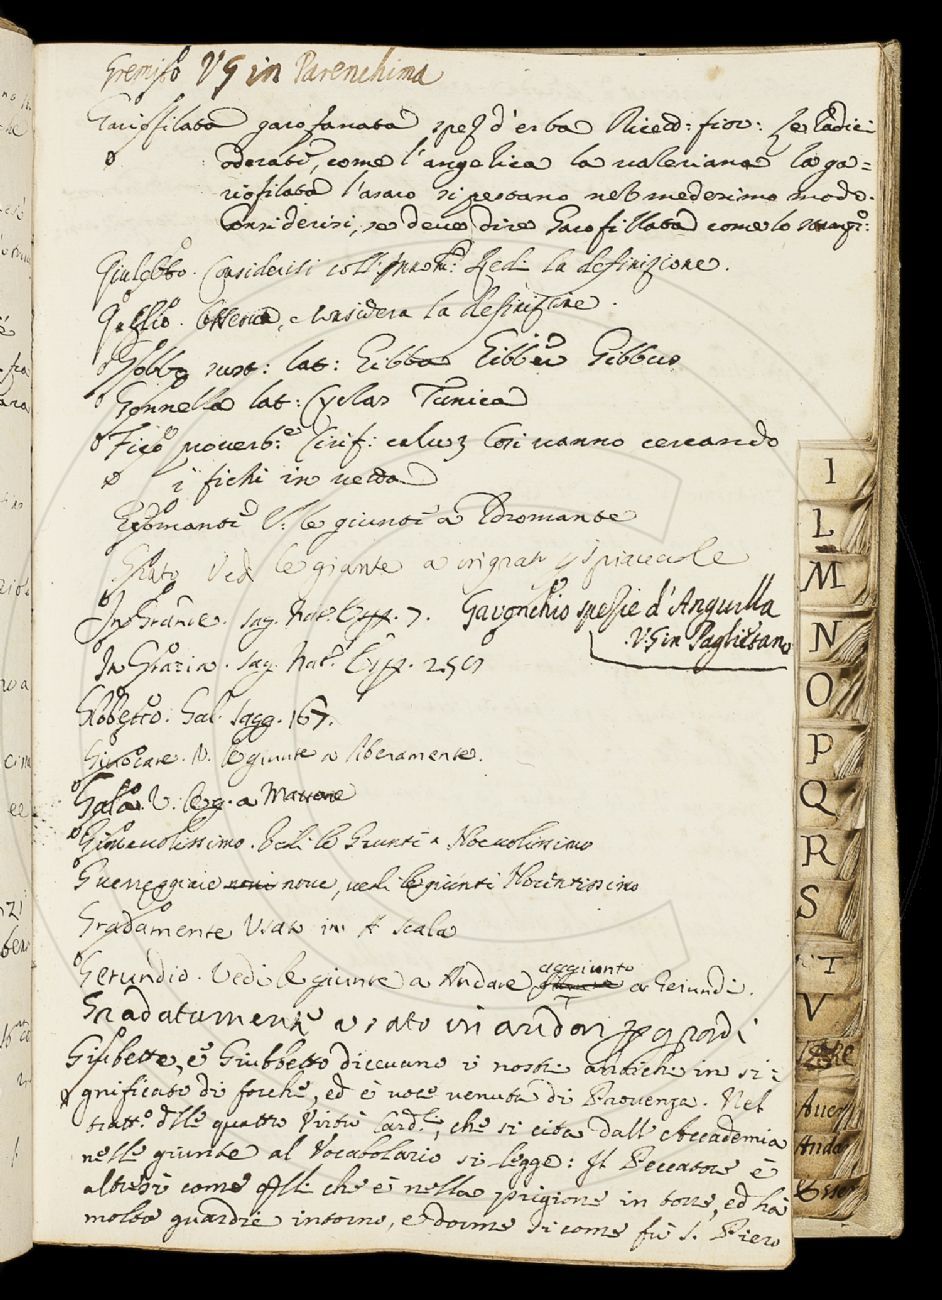 Gremiso V G in Parenchima
Gariosfilata garofanata spez d'erba Ricett: fior: Le radici
odorate, come l'angelica la valeriana la ga=
riofilata l'asaro si pestano nel medesimo modo.
Considerisi, se deve dire Garofillata come lo stampo:
Giulebbo. Considerisi coll' Vedi la definizione.
Osserva, e considera la definizione.
Gobbo sust: lat: Gibba Gibber Gibbus
Gonnella lat: Cyclas Tunica
Fico proverb: Cirif: calv: Cosi vanno cercando
i fichi in vetta
Geomante V: le giunte a Idromante
Grato Ved le giante a ingrato spiacevole
In Grãne. sag. nat. Esp. 7. Gavonchio spezie d'Anguilla
V. G in Paglietano
In Grazia. sag. nat. Esp. 250
Globetto. Gal. sagg. 167.
Giuocare. V. le giunte a liberamente.
Gala V. le g. a Marrone
Giovevolissimo. Vedi le Giunte a Nocevolissimo
Guerreggiare nove, vedi le giunte Novintissimo
Gradamente Usato in A scala
Gerundio. Vedi le giunte a Andare aggiunto a Geiundi.
Gradatamente usato in
Giubette, e Giubbetto diceuano i nostri antichi in si=
gnificato di forche, ed è voce venuta di Provenza. Nel
tratt.o dlle quattro Virtù Card.li, che si cita dall'Accademia
nelle giunte al Vocabolario si legge: Il Peccatore è
altresì come qlli che è nella prigione in torre, ed hà
molte guardie intorno, e dorme sicome fu S. Piero
I
L
M
N
O
P
Q
R
S
T
V
Aver
Anda
Esse